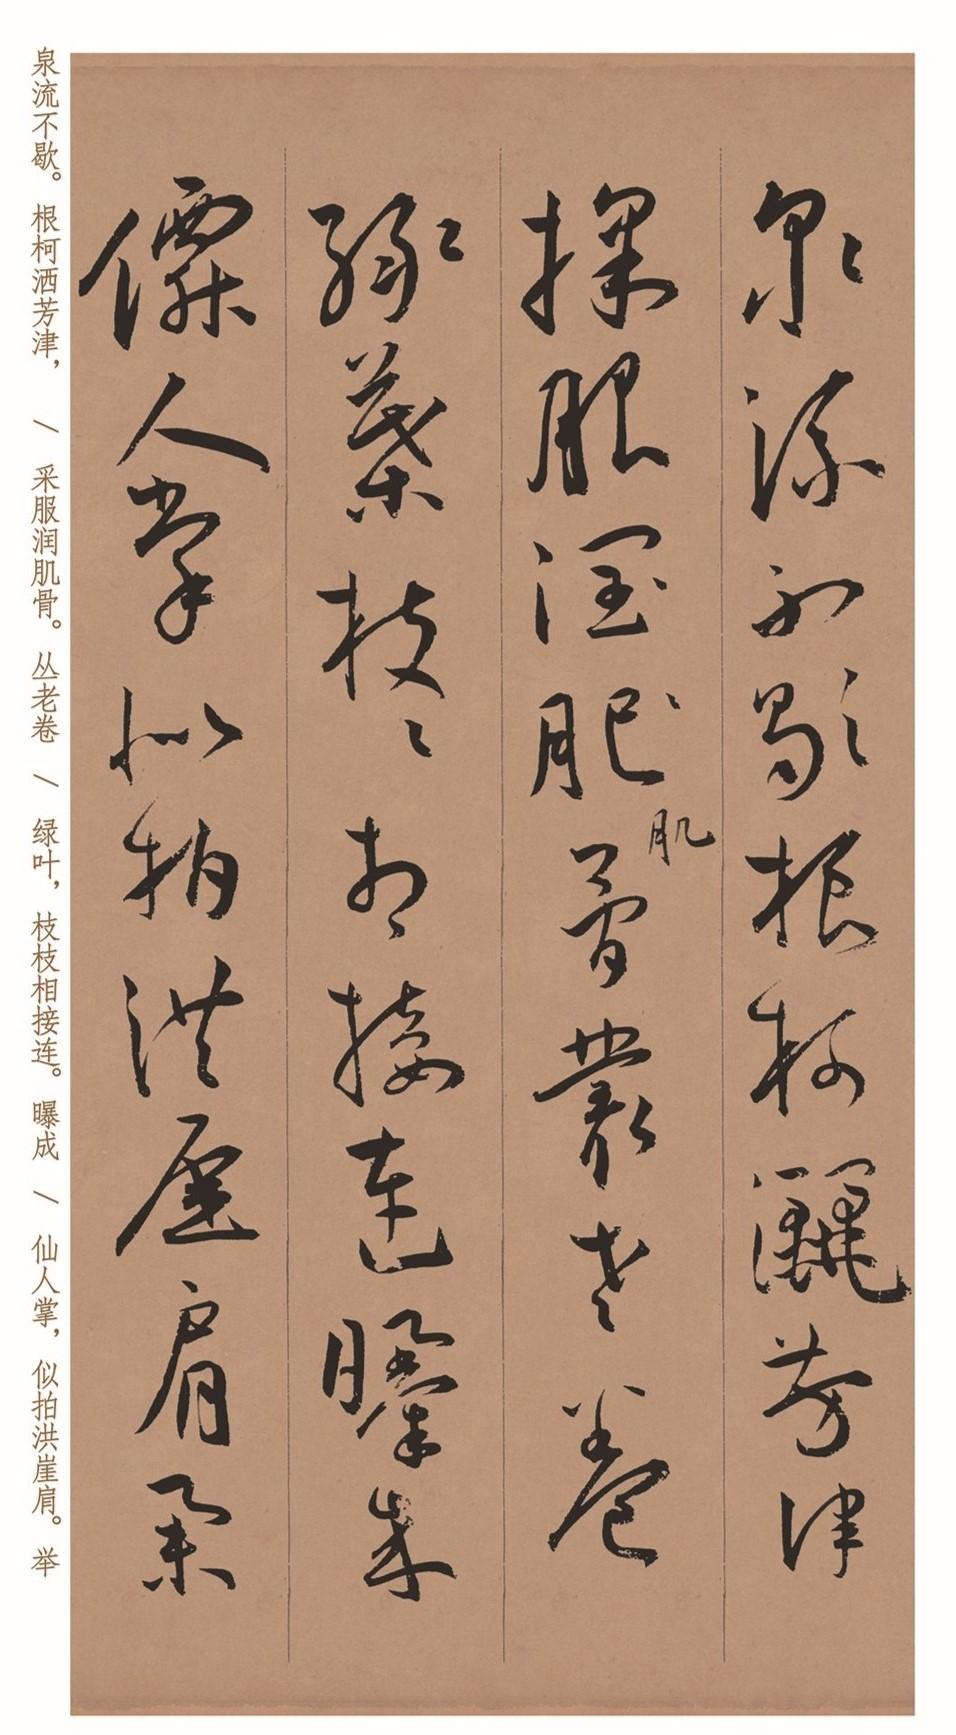 泉流不歇根柯灑芳津
採服潤肥骨叢老卷
肌
綠葉枝〻相接連曝成
僊人掌似拍洪崖肩舉
泉流不歇。根柯洒芳津， / 采服润肌骨。丛老卷 / 绿叶，枝枝相接连。曝成 / 仙人掌，似拍洪崖肩。举